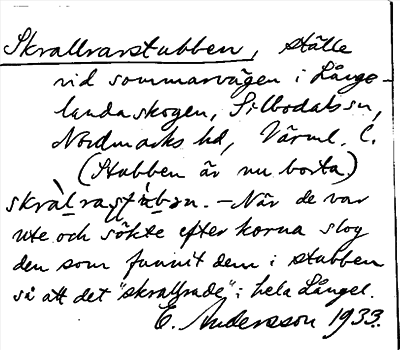 Skrallrarstubben, ställe
vid sommarvägen i Långe-
landaskogen, Silbodals sn,
Nordmarks hd, Värml. l.
(Stubben är nu borta)
skràlrastùbən. – När de var
ute och sökte efter korna slog
den som funnit dem i stubben
så att det "skrallrade" i hela Långel.
E. Andersson 1933.